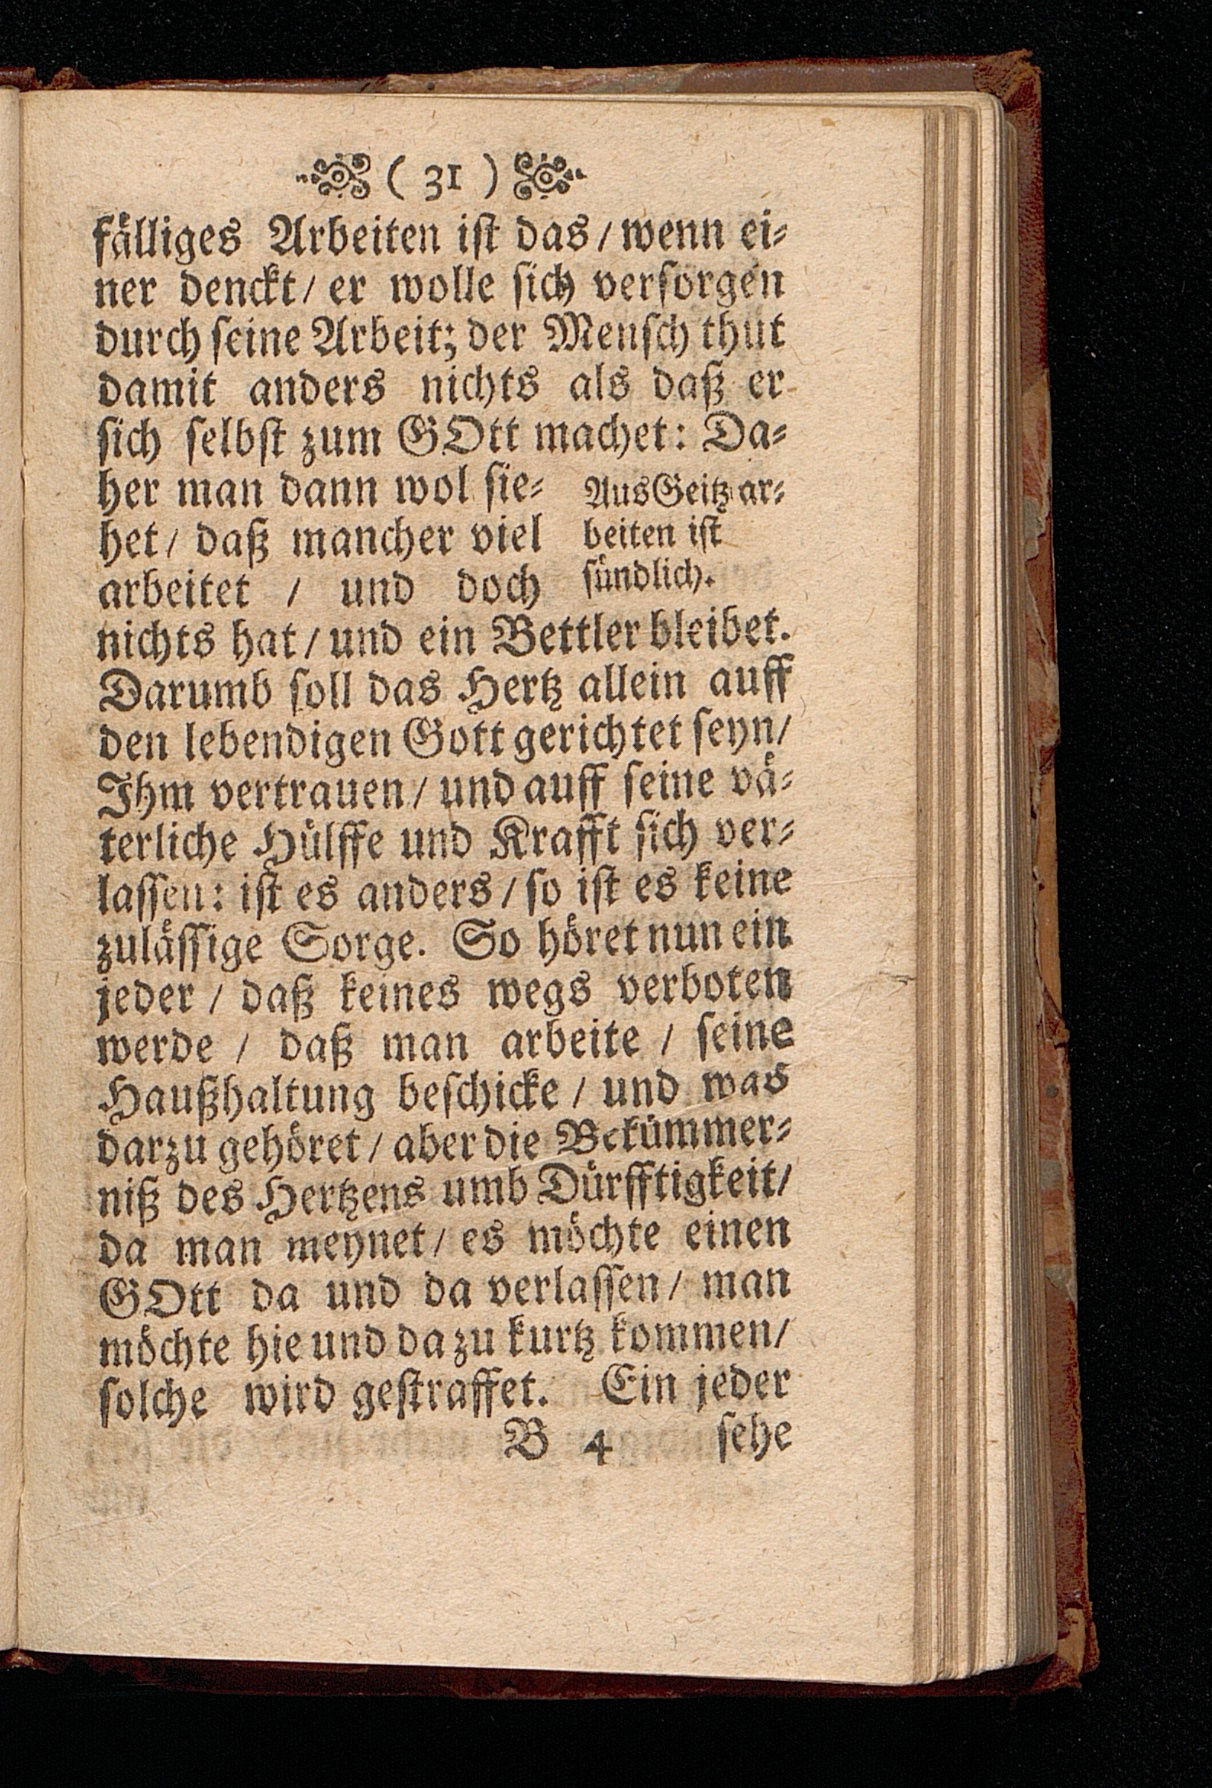 ( 31 )
fälliges Arbeiten ist das / wenn ei-
ner denckt / er wolle sich versorgen
durch seine Arbeit; der Mensch thut
damit anders nichts als daß er
sich selbst zum GOtt machet: Da-
her man dann wol sie-
het / daß mancher viel
arbeitet / und doch
Aus Geitz ar-
beiten ist
sündlich.
nichts hat / und ein Bettler bleibet.
Darumb soll das Hertz allein auff
den lebendigen Gott gerichtet seyn /
Ihm vertrauen / und auff seine vä-
terliche Hülffe und Krafft sich ver-
lassen: ist es anders / so ist es keine
zulässige Sorge. So höret nun ein
jeder / daß keines wegs verboten
werde / daß man arbeite / seine
Haußhaltung beschicke / und was
darzu gehöret / aber die Bekümmer-
niß des Hertzens umb Dürfftigkeit /
da man meynet / es möchte einen
GOtt da und da verlassen / man
möchte hie und da zu kurtz kommen /
solche wird gestraffet. Ein jeder
B 4 sehe